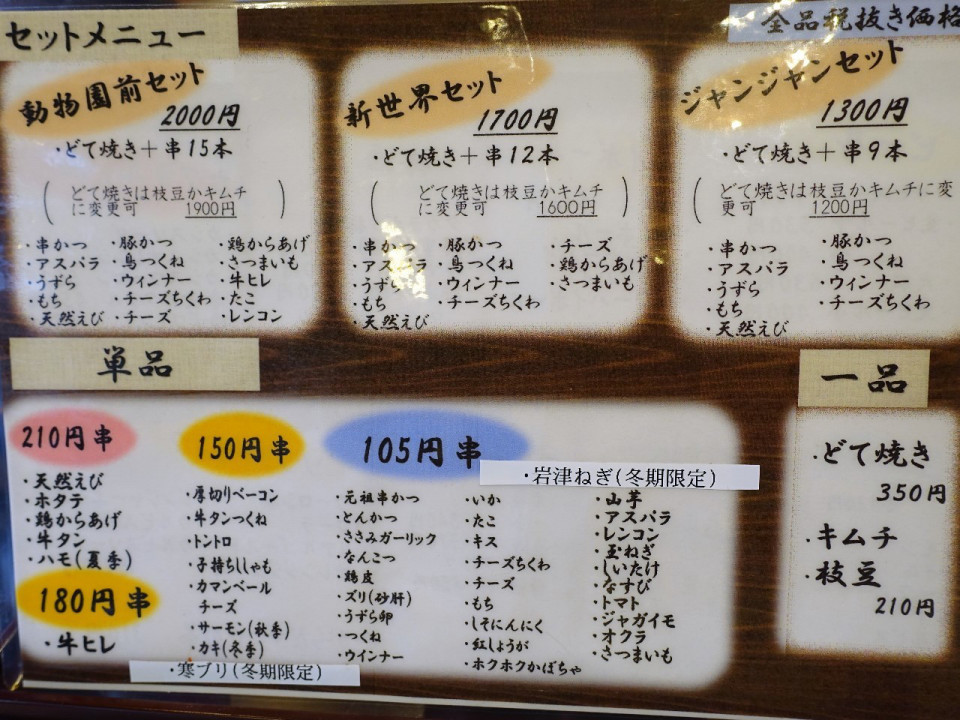 セットメニュー
全品税抜き価格
動物園前セット
2000円
・どて焼き＋串15本
(どて焼きは枝豆かキムチ
に変更可 1900円)
・串かつ
・アスパラ
・うずら
・もち
・天然えび
・豚かつ
・鳥つくね
・ウィンナー
・チーズちくわ
・チーズ
・鶏からあげ
・さつまいも
・牛ヒレ
・たこ
・レンコン
新世界セット
1700円
・どて焼き＋串12本
(どて焼きは枝豆かキムチ
に変更可 1600円)
・串かつ
・アスパラ
・うずら
・もち
・天然えび
・豚かつ
・鳥つくね
・ウィンナー
・チーズちくわ
・チーズ
・鶏からあげ
・さつまいも
ジャンジャンセット
1300円
・どて焼き＋串9本
(どて焼きは枝豆かキムチに変
更可 1200円)
・串かつ
・アスパラ
・うずら
・もち
・天然えび
・豚かつ
・鳥つくね
・ウィンナー
・チーズちくわ
単品
210円串
・天然えび
・ホタテ
・鶏からあげ
・牛タン
・ハモ(夏季)
180円串
・牛ヒレ
150円串
・厚切りベーコン
・牛タンつくね
・トントロ
・子持ちししゃも
・カマンベール
チーズ
・サーモン(秋季)
・カキ(冬季)
・寒ブリ(冬期限定)
105円串
・岩津ねぎ(冬期限定)
・元祖串かつ
・とんかつ
・ささみガーリック
・なんこつ
・鶏皮
・ズリ(砂肝)
・うずら卵
・つくね
・ウインナー
・いか
・たこ
・キス
・チーズちくわ
・チーズ
・もち
・しそにんにく
・紅しょうが
・ホクホクかぼちゃ
・山芋
・アスパラ
・レンコン
・玉ねぎ
・しいたけ
・なすび
・トマト
・ジャガイモ
・オクラ
・さつまいも
一品
・どて焼き
350円
・キムチ
・枝豆
210円